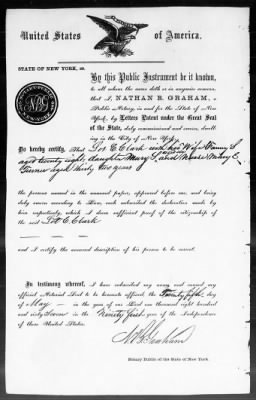 United States of America.
STATE OF NEW YORK, ss.
By this Public Instrument be it known,
to all whom the same doth or in anywise concern,
that I, NATHAN R. GRAHAM, a
Public Notary, in and for the State of New
York, by Letters Patent under the Great Seal
of the State, duly commissioned and sworn, dwell-
ing in the City of New York,
Do hereby certify, That Lot C Clark with his Wife
aged twenty eight, daughter Mary
aged thirty two years
the persons named in the annexed papers, appeared before me, and being
duly sworn according to law, each subscribed the declaration made by
him respectively, which I deem sufficient proof of the citizenship of
the said Lot C. Clark
and I certify the annexed description of his person to be correct.
In testimony whereof, I have subscribed my name and caused my
official Notarial Seal to be hereunto affixed, the Twenty fifth day
of May in the year of our Lord one thousand eight hundred
and sixty Seven in the Ninety first year of the Independence
of these United States.
N R Graham
Notary Public of the State of New York.